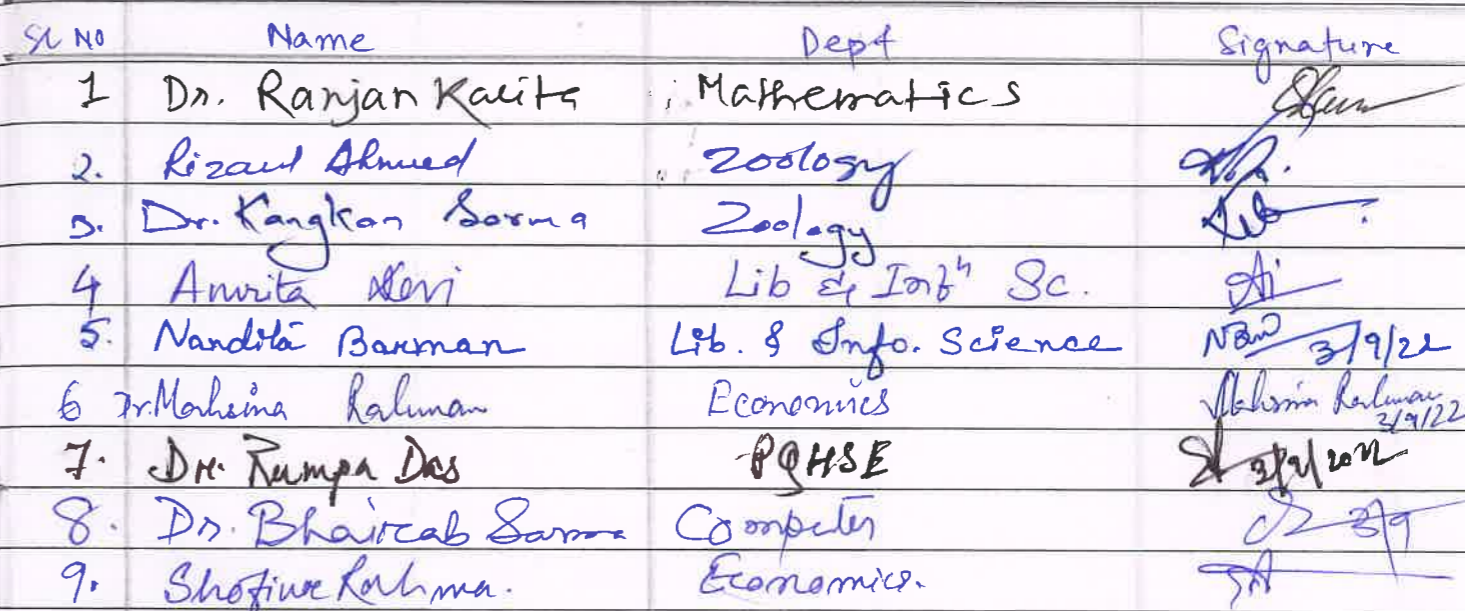 Sl No Name Dept Signature
1 Dr. Ranjan Kalita Mathematics
2. Rizaul Ahmed Zoology
3. Dr. Kangkan Sarma Zoology
4 Amrita Devi Lib & Infn Sc.
5. Nandita Barman Lib. & Info. Science 3/9/22
6 Dr. Mohsina Rahman Economics Mohsina Rahman 3/9/22
7. Dr. Rumpa Das PGHSE 3/9/2022
8. Dr. Bhairab Sarma Computer 3/9
9. Rahman. Economics.